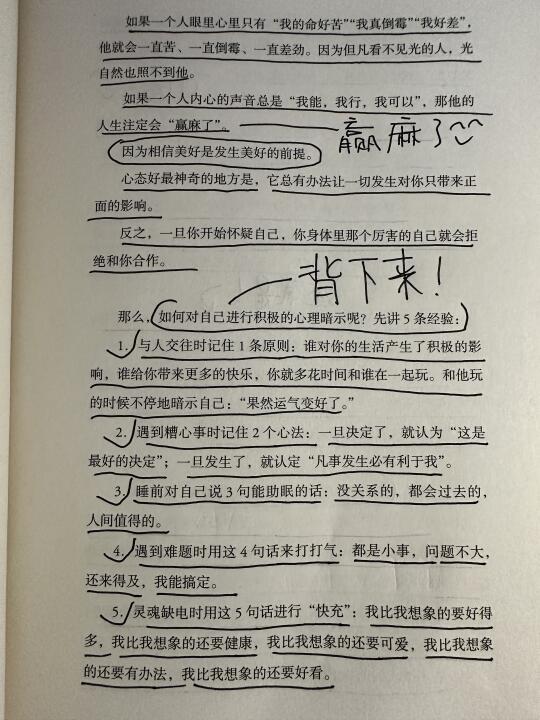 如果一个人眼里心里只有“我的命好苦”“我真倒霉”“我好差”，
他就会一直苦、一直倒霉、一直差劲。因为但凡看不见光的人，光
自然也照不到他。
如果一个人内心的声音总是“我能，我行，我可以”，那他的
人生注定会“赢麻了”。
赢麻了
因为相信美好是发生美好的前提。
心态好最神奇的地方是，它总有办法让一切发生对你只带来正
面的影响。
反之，一旦你开始怀疑自己，你身体里那个厉害的自己就会拒
绝和你合作。
背下来！
那么，如何对自己进行积极的心理暗示呢？先讲5条经验：
1. 与人交往时记住1条原则：谁对你的生活产生了积极的影
响，谁给你带来更多的快乐，你就多花时间和谁在一起玩。和他玩
的时候不停地暗示自己：“果然运气变好了。”
2. 遇到糟心事时记住2个心法：一旦决定了，就认为“这是
最好的决定”；一旦发生了，就认定“凡事发生必有利于我”。
3. 睡前对自己说3句能助眠的话：没关系的，都会过去的，
人间值得的。
4. 遇到难题时用这4句话来打打气：都是小事，问题不大，
还来得及，我能搞定。
5. 灵魂缺电时用这5句话进行“快充”：我比我想象的要好得
多，我比我想象的还要健康，我比我想象的还要可爱，我比我想象
的还要有办法，我比我想象的还要好看。